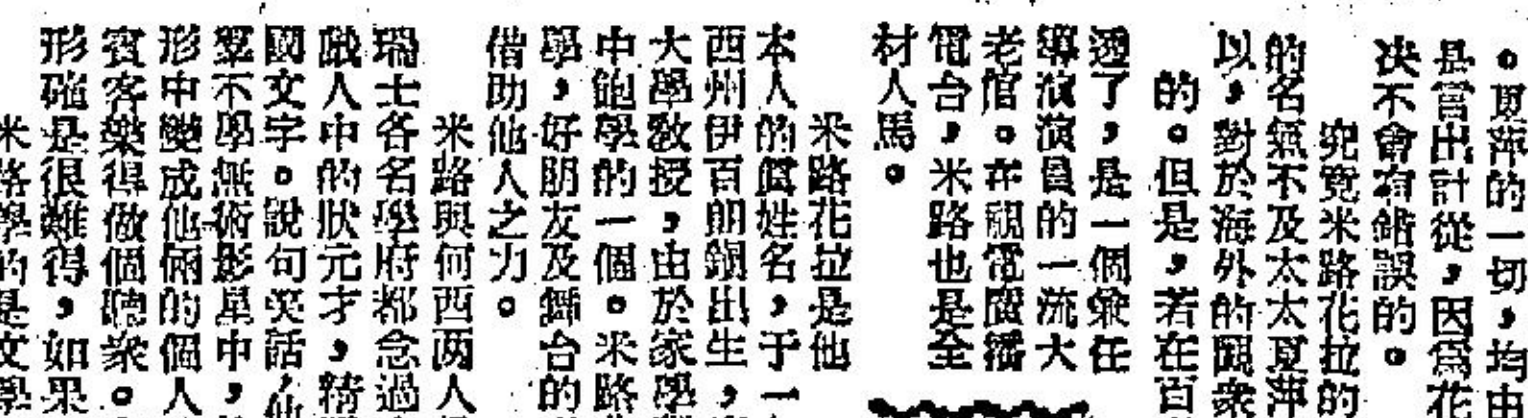 。夏萍的一切，均由
是言出計從，因爲花
决不會有錯誤的。
究竟米路花拉的
的名氣不及太太夏萍
以，對於海外的觀衆
的。但是，若在百
透了，是一個兼任
導演演員的一流大
老倌。在視電廣播
電台，米路也是全
材人馬。
米路花拉是他
本人的眞姓名，于一
西州伊百朗鎭出生，
大學教授，由於家學
中飽學的一個。米路
學，好朋友及舞台的
借助他人之力。
米路與何西两人
瑞士各名學府都念過
戲人中的狀元才，精
國文字。說句笑話，仙
羣不學無術影星中，
形中變成他倆的個人
賓客樂得做個聽衆。
形確是很難得，如果
米路學的是文學